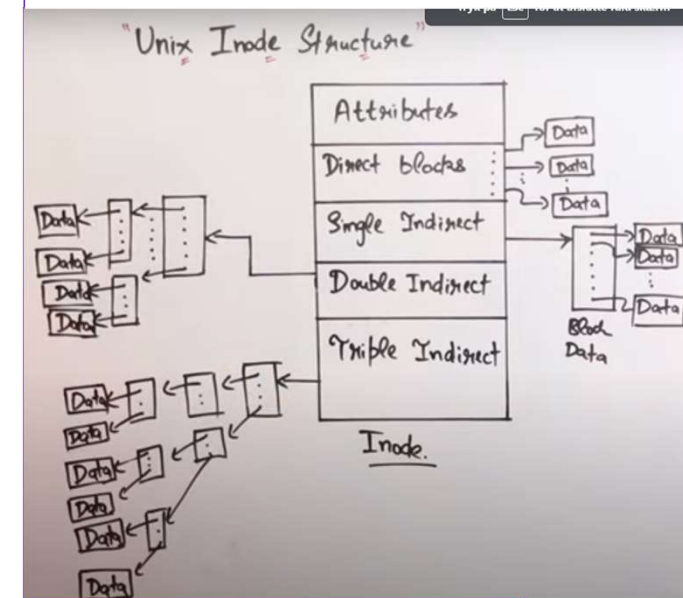 "Unix Inode Structure"
Attributes
Direct blocks
Single Indirect
Double Indirect
Triple Indirect
Inode.
Data
Data
Data
Data
Data
Data
Block
Data
Data
Data
Data
Data
Data
Data
Data
Data
Data
Data